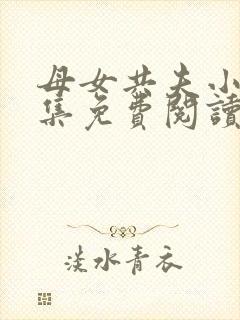 母女共夫小
集免費閱讀
淡水青衣